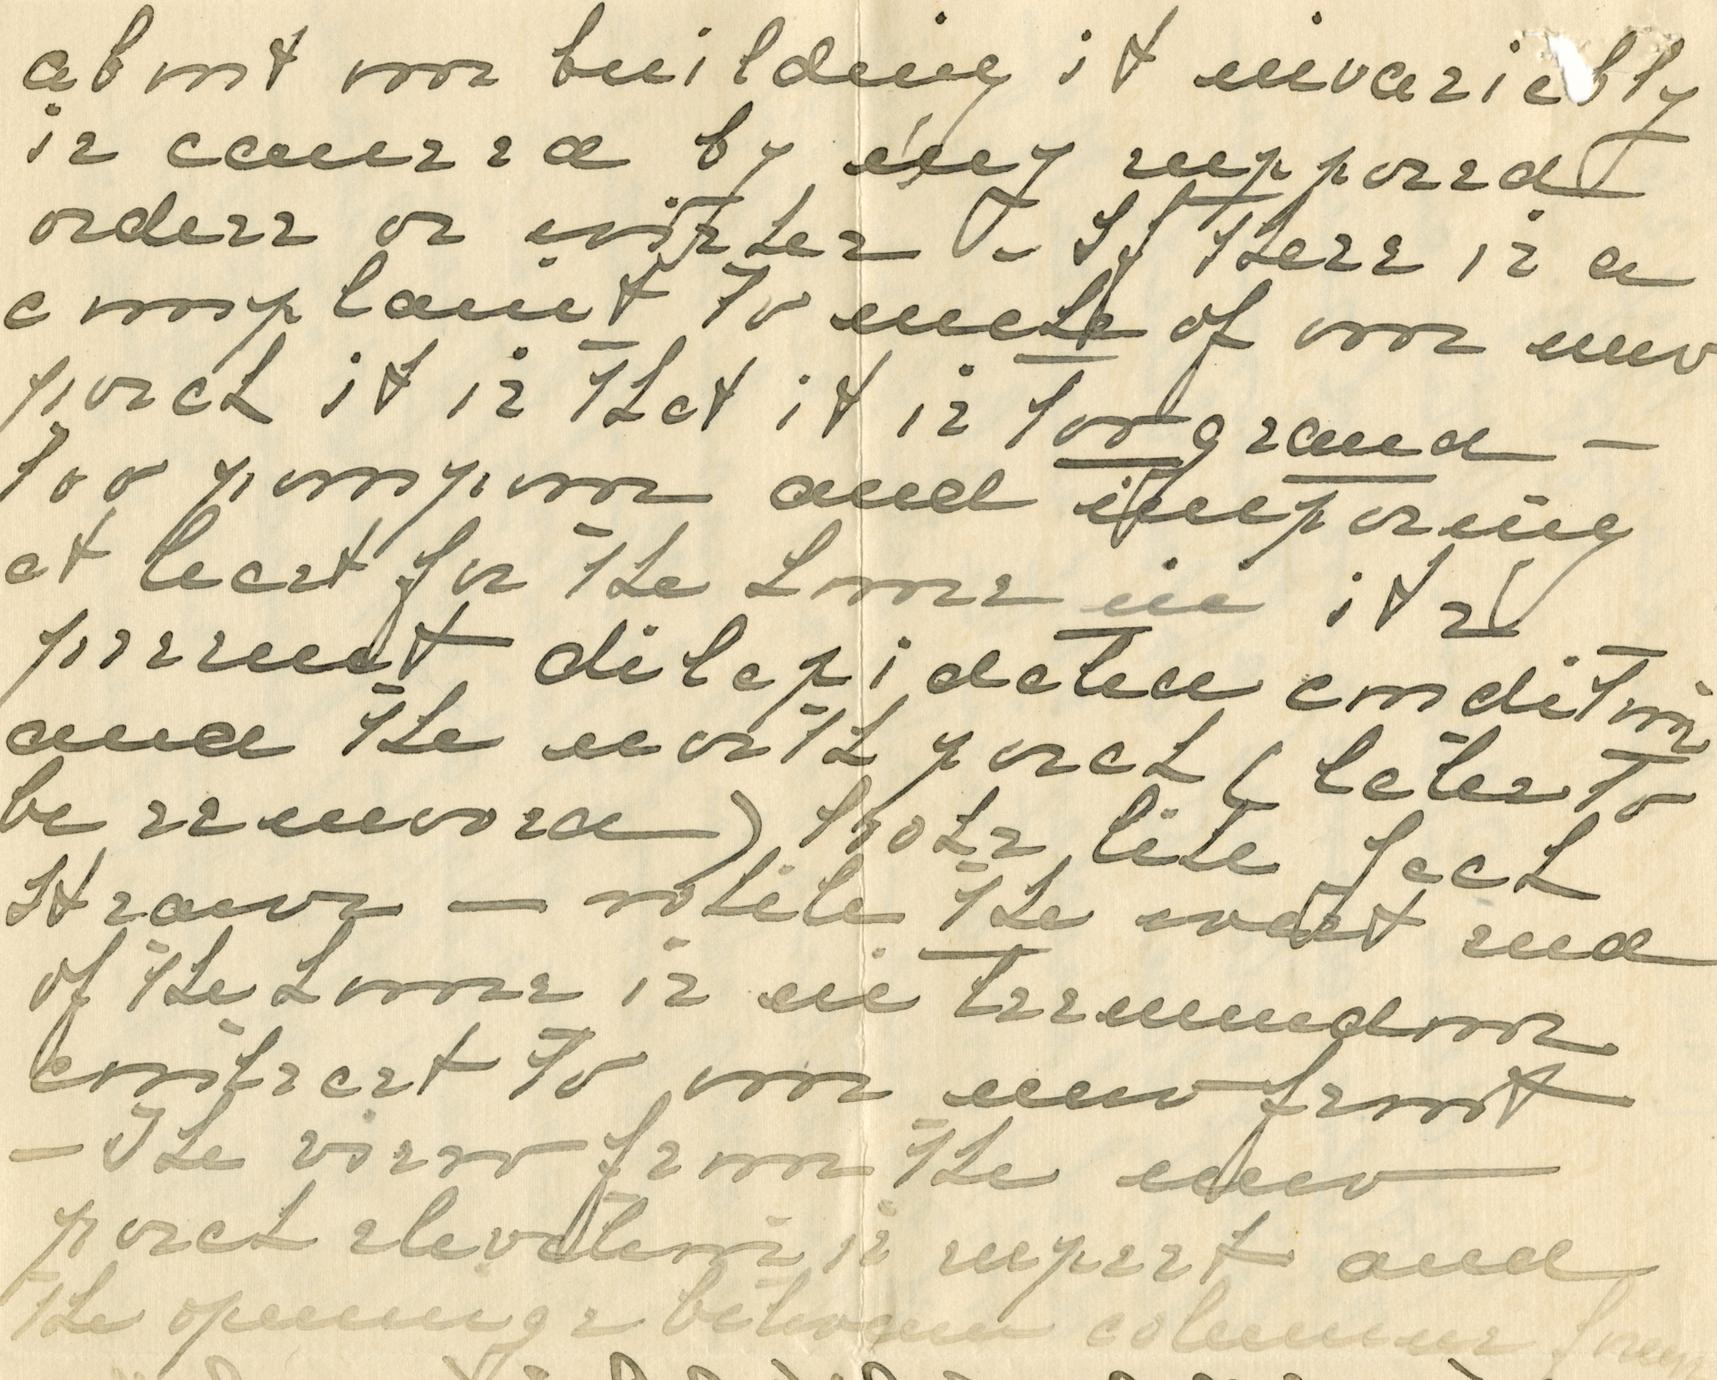 about our building it invariably
is caused by my supposed
orders or wishes - If there is a
complaint to make of our new
porch it is that it is too grand -
too pompous and imposing
at least for the house in its
present dilapidated condition
and the north porch (later to
be removed) looks like Jack
Straws - while the west end
of the house is in tremendous
contrast to our new front
- The view from the new
porch elevation is superb and
the openings between columns frame